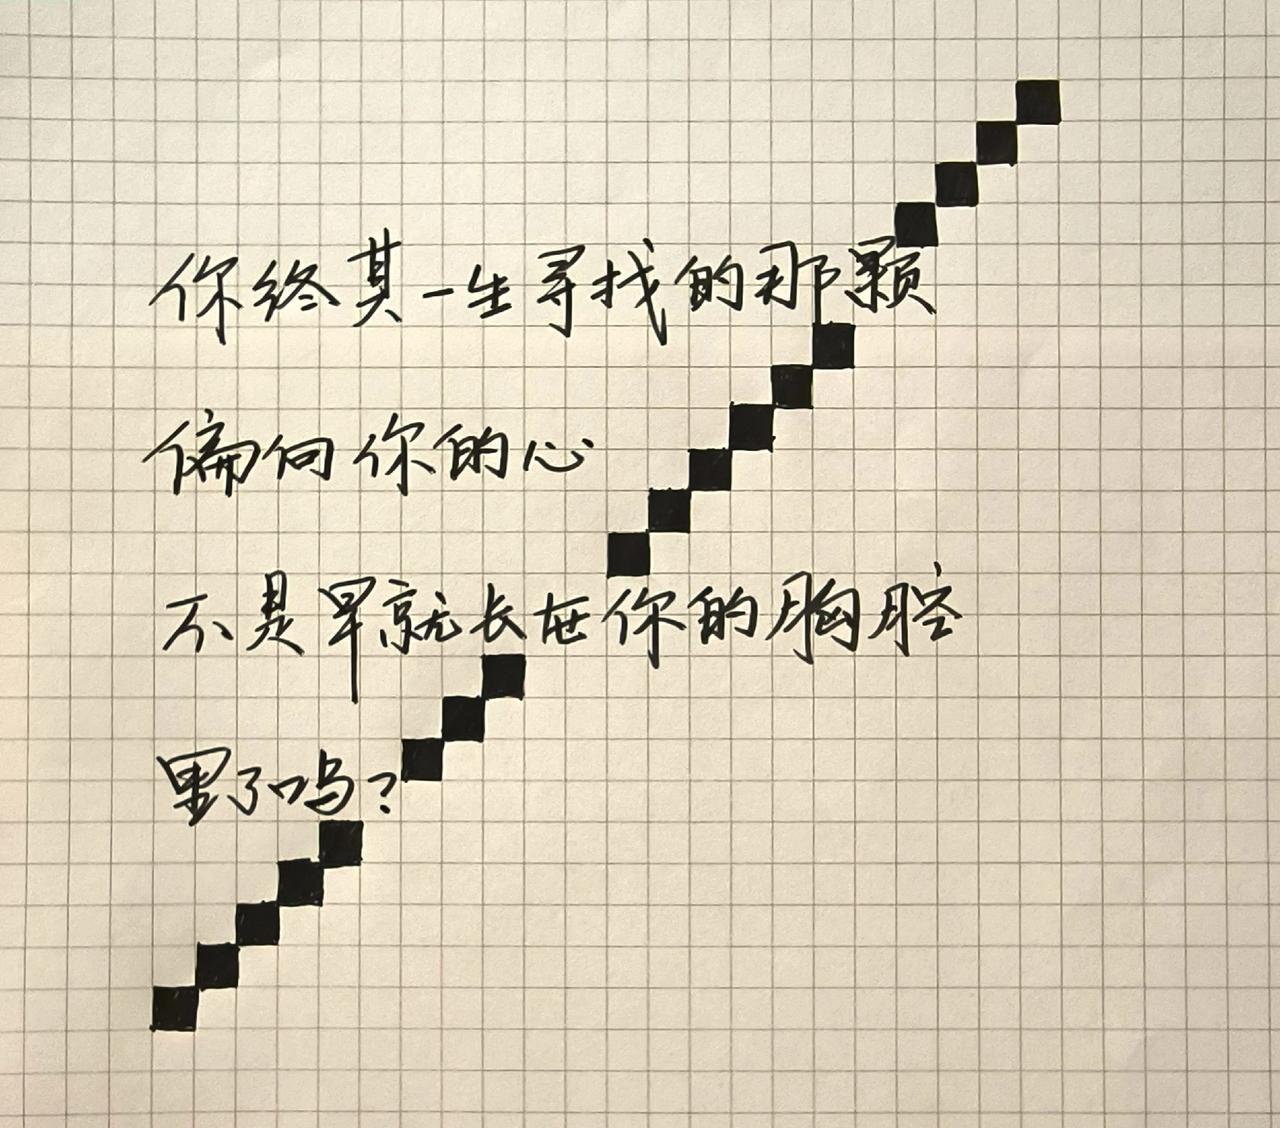 你终其一生寻找的那颗
偏向你的心
不是早就长在你的胸腔
里了吗?